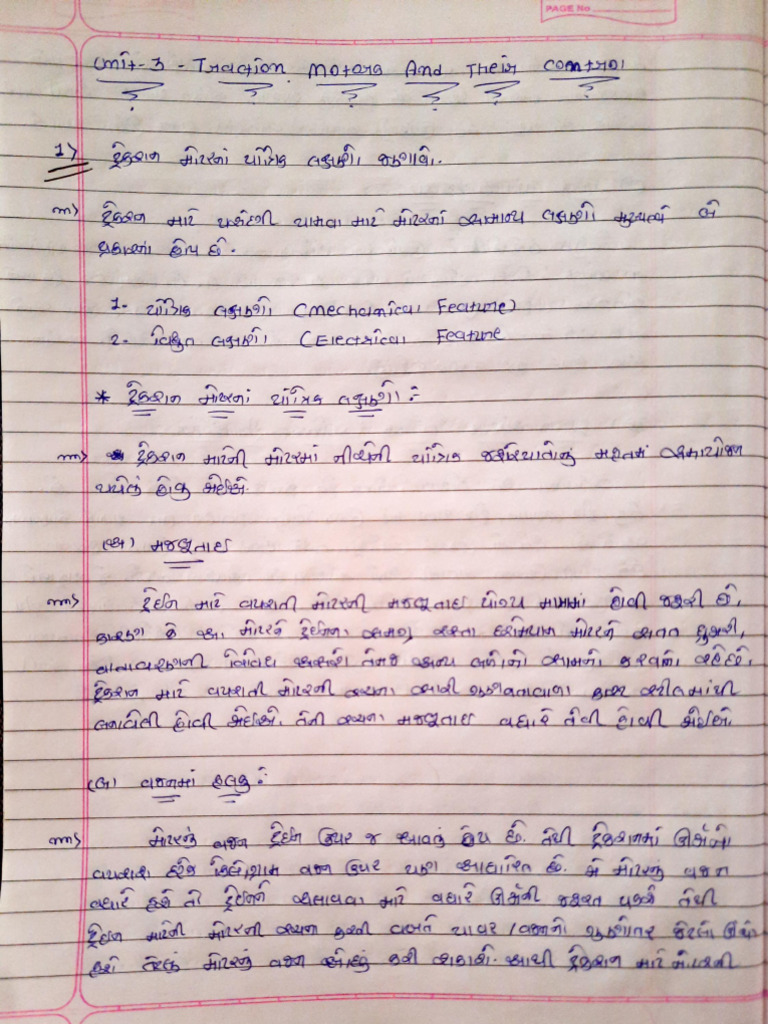 PAGE No
Unit-3 - Traction Motors And Their Control
1> ટ્રેક્શન મોટરનાં યાંત્રિક લક્ષણો જણાવો.
ટ્રેક્શન માટે પસંદગી પામવા માટે મોટરનાં સામાન્ય લક્ષણો મુખ્યત્વે બે
પ્રકારનાં હોય છે.
1. યાંત્રિક લક્ષણો (Mechanical Feature)
2. વિદ્યુત લક્ષણો (Electrical Feature
* ટ્રેક્શન મોટરનાં યાંત્રિક લક્ષણો :-
ટ્રેક્શન માટેની મોટરમાં નીચેની યાંત્રિક જરૂરિયાતોનું મહત્તમાં સમાયોજન
થયેલું હોવું જોઈએ.
(અ) મજબૂતાઇ
ટ્રેઈન માટે વપરાતી મોટરની મજબૂતાઇ યોગ્ય માત્રામાં હોવી જરૂરી છે,
કારણ કે આ મોટરને ટ્રેઈનના સમગ્ર રસ્તા દરમિયાન મોટરને સતત ધ્રુજારી,
વાતાવરણની વિવિધ અસરો તેમજ અન્ય બળોનો સામનો કરવાનો રહે છે.
ટ્રેક્શન માટે વપરાતી મોટરની રચના સારી ગુણવત્તાવાળા કાસ્ટ સ્ટીલમાંથી
બનાવેલી હોવી જોઈએ. તેની રચના મજબૂતાઇ વધારે તેવી હોવી જોઈએ.
(બ) વજનમાં હલકું :-
મોટરનું વજન ટ્રેઈન ઉપર જ આવતું હોય છે. તેથી ટ્રેક્શનમાં ઊર્જાનો
વપરાશ દરેક કિલોગ્રામ વજન ઉપર પણ આધારિત છે. જો મોટરનું વજન
વધારે હશે તો ટ્રેઈનને ચલાવવા માટે વધારે ઊર્જાની જરૂરત પડશે તેથી
ટ્રેઈન માટેની મોટરની રચના કરતી વખતે પાવર / વજનનો ગુણોત્તર જેટલો ઊંચો
હશે તેટલું મોટરનું વજન ઓછું કરી શકાશે. આથી ટ્રેક્શન માટે મોટરની